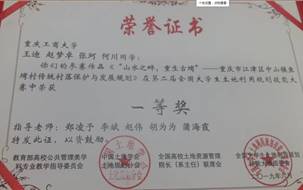 荣誉证书
重庆工商大学
王迪 赵梦卓 张珂 何川同学：
你们的参赛作品《“山水之畔，重生古埤”——重庆市江津区中山镇鱼
埤村传统村落保护与发展规划》在第二届全国大学生土地利用规划技能大
赛中荣获
一等奖
指导老师：郑凌予 李斌 赵伟 胡为为 蒲海霞
特发此证，以资鼓励！
教育部高校公共管理类学
科专业教学指导委员会
中国土地学会
土地规划分会
全国高校土地资源管理
院长（系主任）联席会